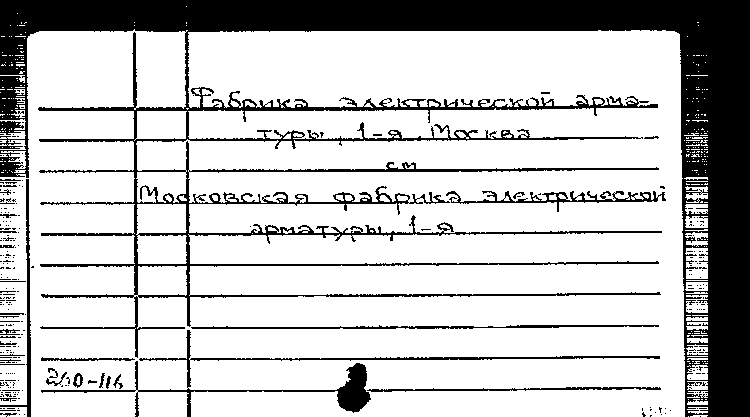 Фабрика электрической арма-
туры, 1-я. Москва
см
Московская фабрика электрической
арматуры, 1-я
260-116